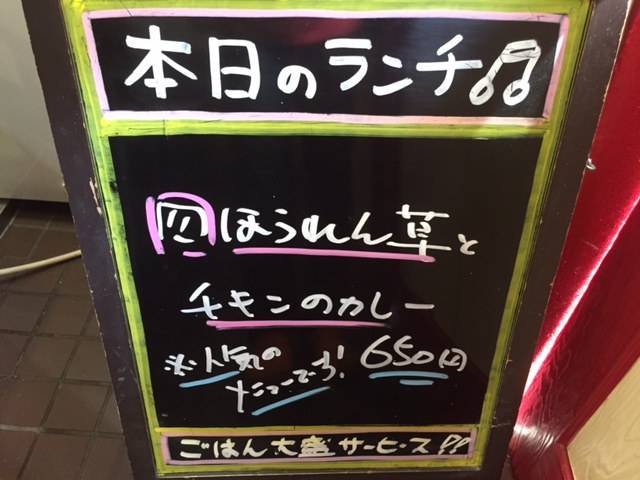 本日のランチ♫
㊃ほうれん草と
チキンのカレー
※人気の
メニューでーす! 650円
ごはん大盛サービス!!